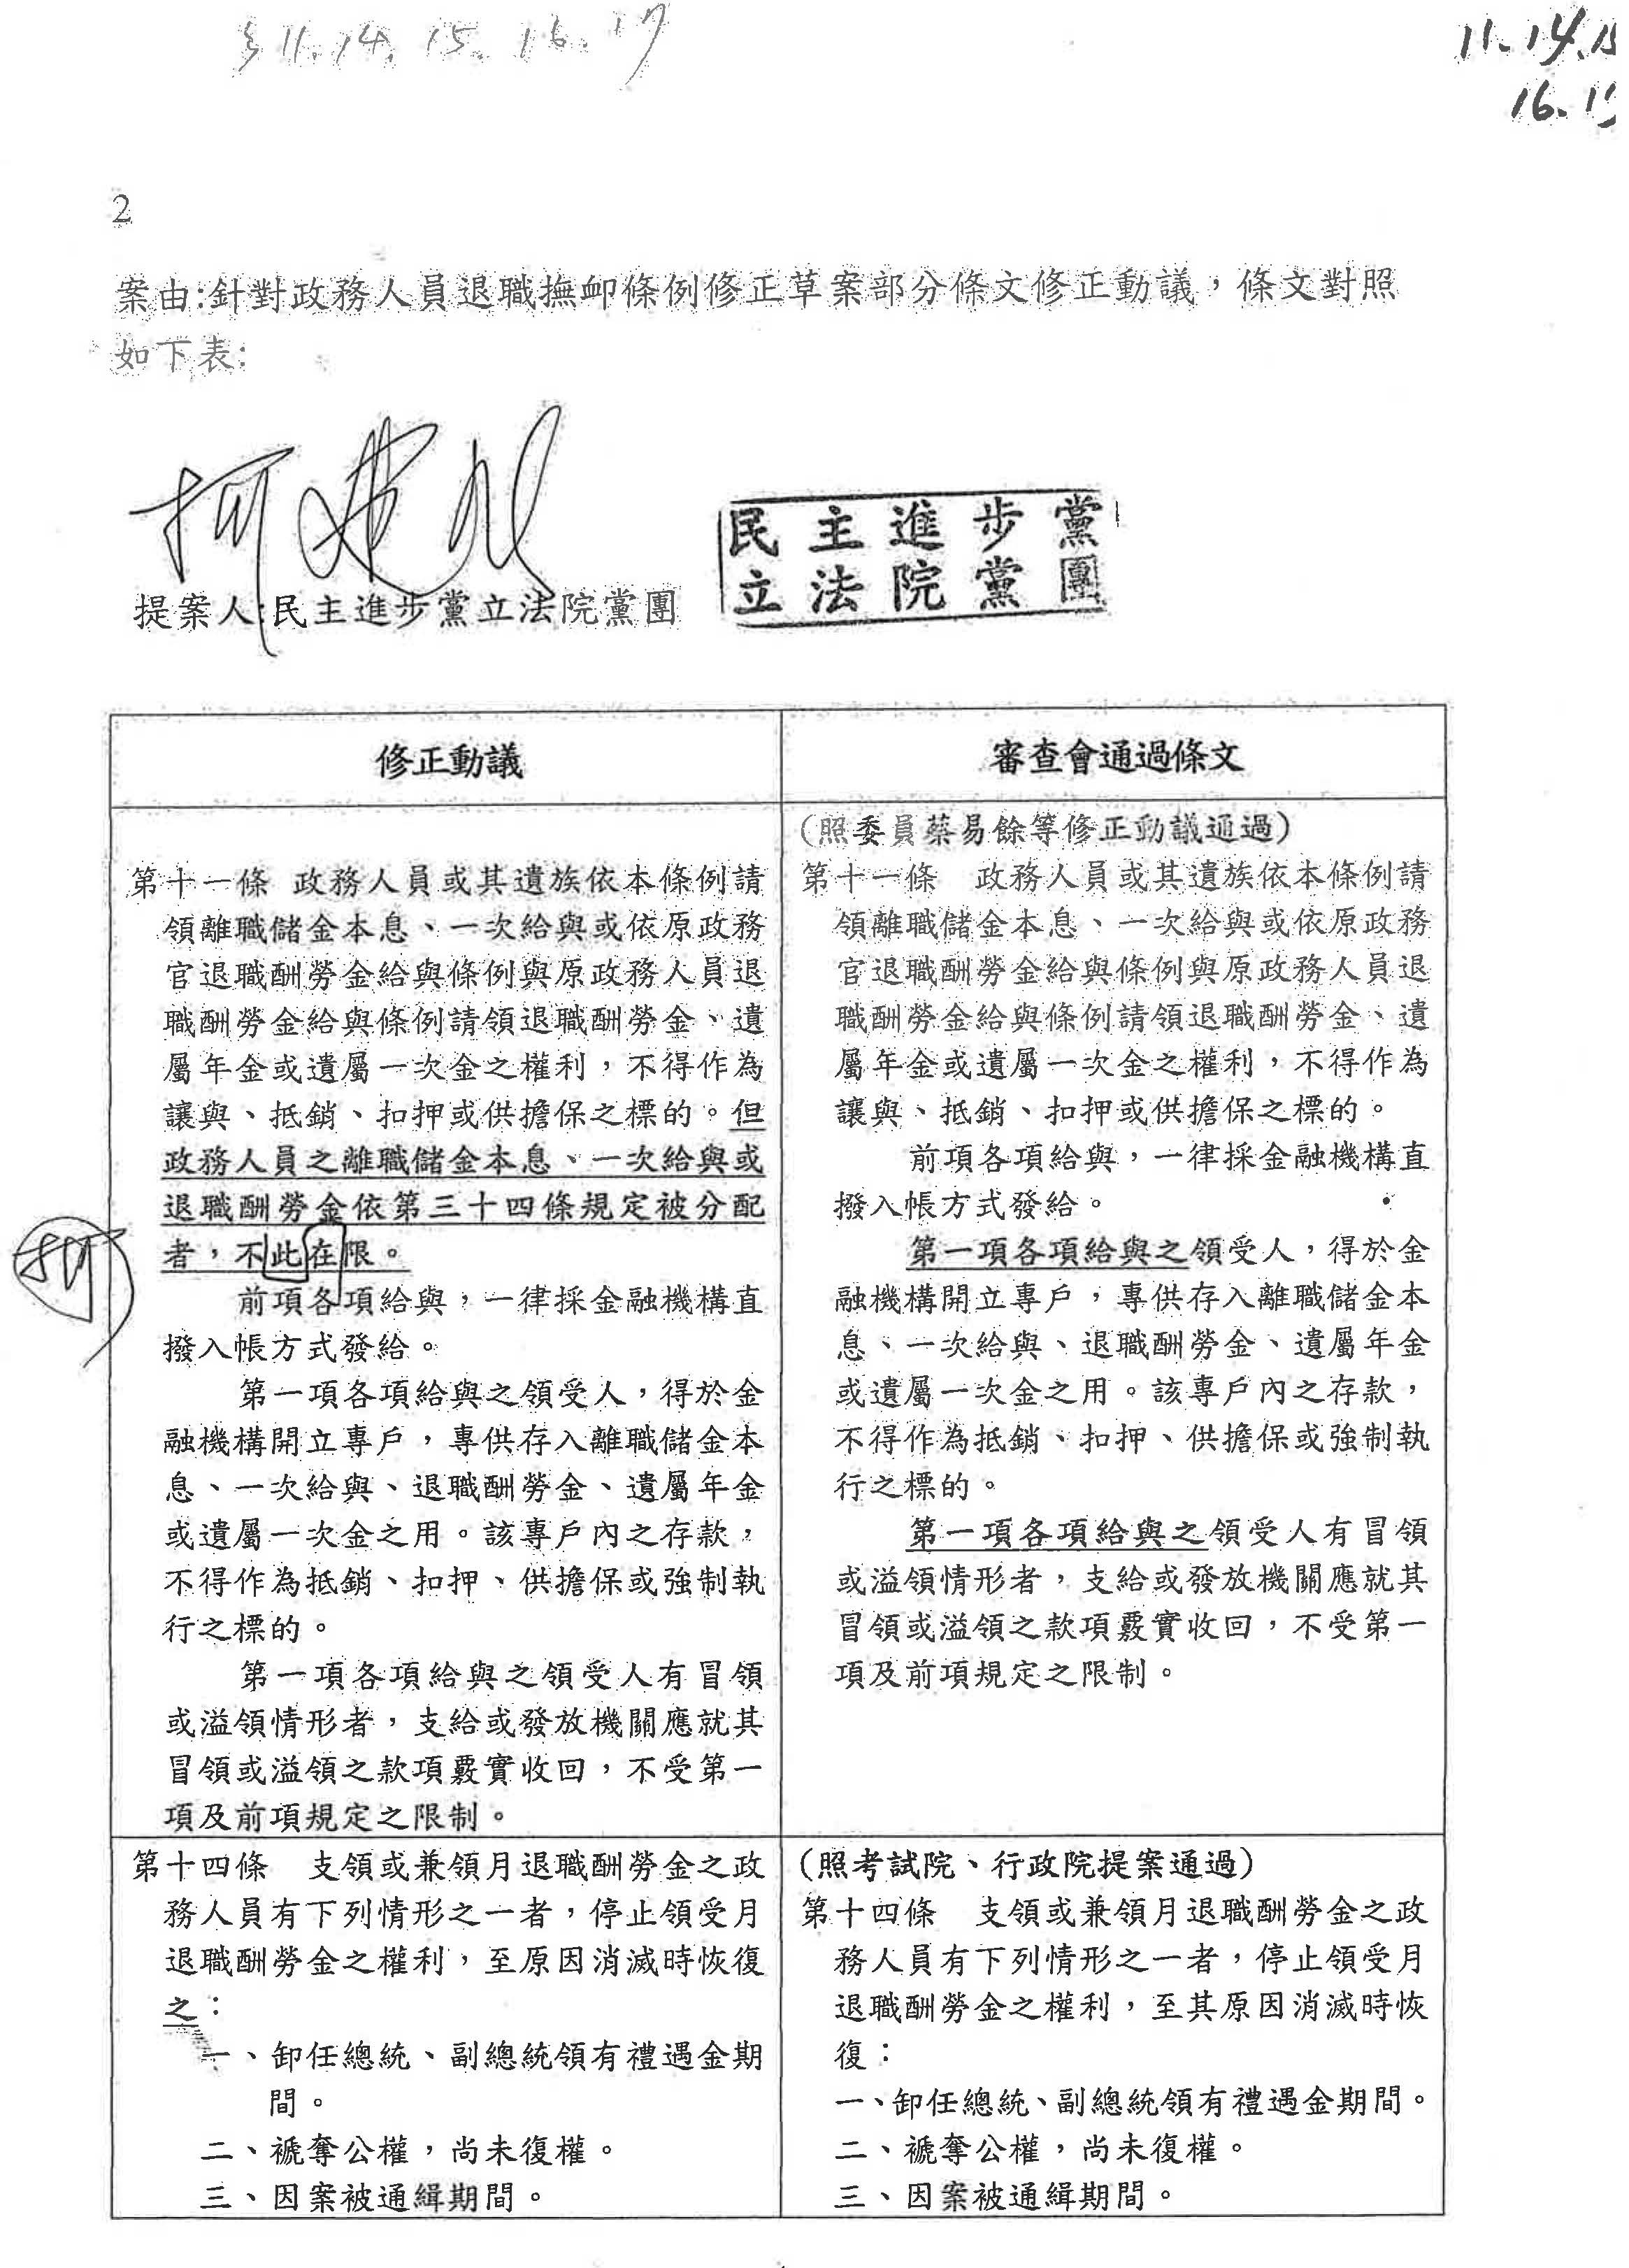 §11.14.15.16.17
11.14.15
16.1
2
案由:針對政務人員退職撫卹條例修正草案部分條文修正動議，條文對照
如下表:
柯建銘
民主進步黨
立法院黨團
提案人:民主進步黨立法院黨團
修正動議
第十一條 政務人員或其遺族依本條例請
領離職儲金本息、一次給與或依原政務
官退職酬勞金給與條例與原政務人員退
職酬勞金給與條例請領退職酬勞金、遺
屬年金或遺屬一次金之權利，不得作為
讓與、抵銷、扣押或供擔保之標的。但
政務人員之離職儲金本息、一次給與或
退職酬勞金依第三十四條規定被分配
者，不此在限。
柯
前項各項給與，一律採金融機構直
撥入帳方式發給。
第一項各項給與之領受人，得於金
融機構開立專戶，專供存入離職儲金本
息、一次給與、退職酬勞金、遺屬年金
或遺屬一次金之用。該專戶內之存款，
不得作為抵銷、扣押、供擔保或強制執
行之標的。
第一項各項給與之領受人有冒領
或溢領情形者，支給或發放機關應就其
冒領或溢領之款項覈實收回，不受第一
項及前項規定之限制。
審查會通過條文
(照委員蔡易餘等修正動議通過)
第十一條　政務人員或其遺族依本條例請
領離職儲金本息、一次給與或依原政務
官退職酬勞金給與條例與原政務人員退
職酬勞金給與條例請領退職酬勞金、遺
屬年金或遺屬一次金之權利，不得作為
讓與、抵銷、扣押或供擔保之標的。
前項各項給與，一律採金融機構直
撥入帳方式發給。
第一項各項給與之領受人，得於金
融機構開立專戶，專供存入離職儲金本
息、一次給與、退職酬勞金、遺屬年金
或遺屬一次金之用。該專戶內之存款，
不得作為抵銷、扣押、供擔保或強制執
行之標的。
第一項各項給與之領受人有冒領
或溢領情形者，支給或發放機關應就其
冒領或溢領之款項覈實收回，不受第一
項及前項規定之限制。
第十四條　支領或兼領月退職酬勞金之政
務人員有下列情形之一者，停止領受月
退職酬勞金之權利，至原因消滅時恢復
之：
一、卸任總統、副總統領有禮遇金期
間。
二、褫奪公權，尚未復權。
三、因案被通緝期間。
(照考試院、行政院提案通過)
第十四條　支領或兼領月退職酬勞金之政
務人員有下列情形之一者，停止領受月
退職酬勞金之權利，至其原因消滅時恢
復：
一、卸任總統、副總統領有禮遇金期間。
二、褫奪公權，尚未復權。
三、因案被通緝期間。